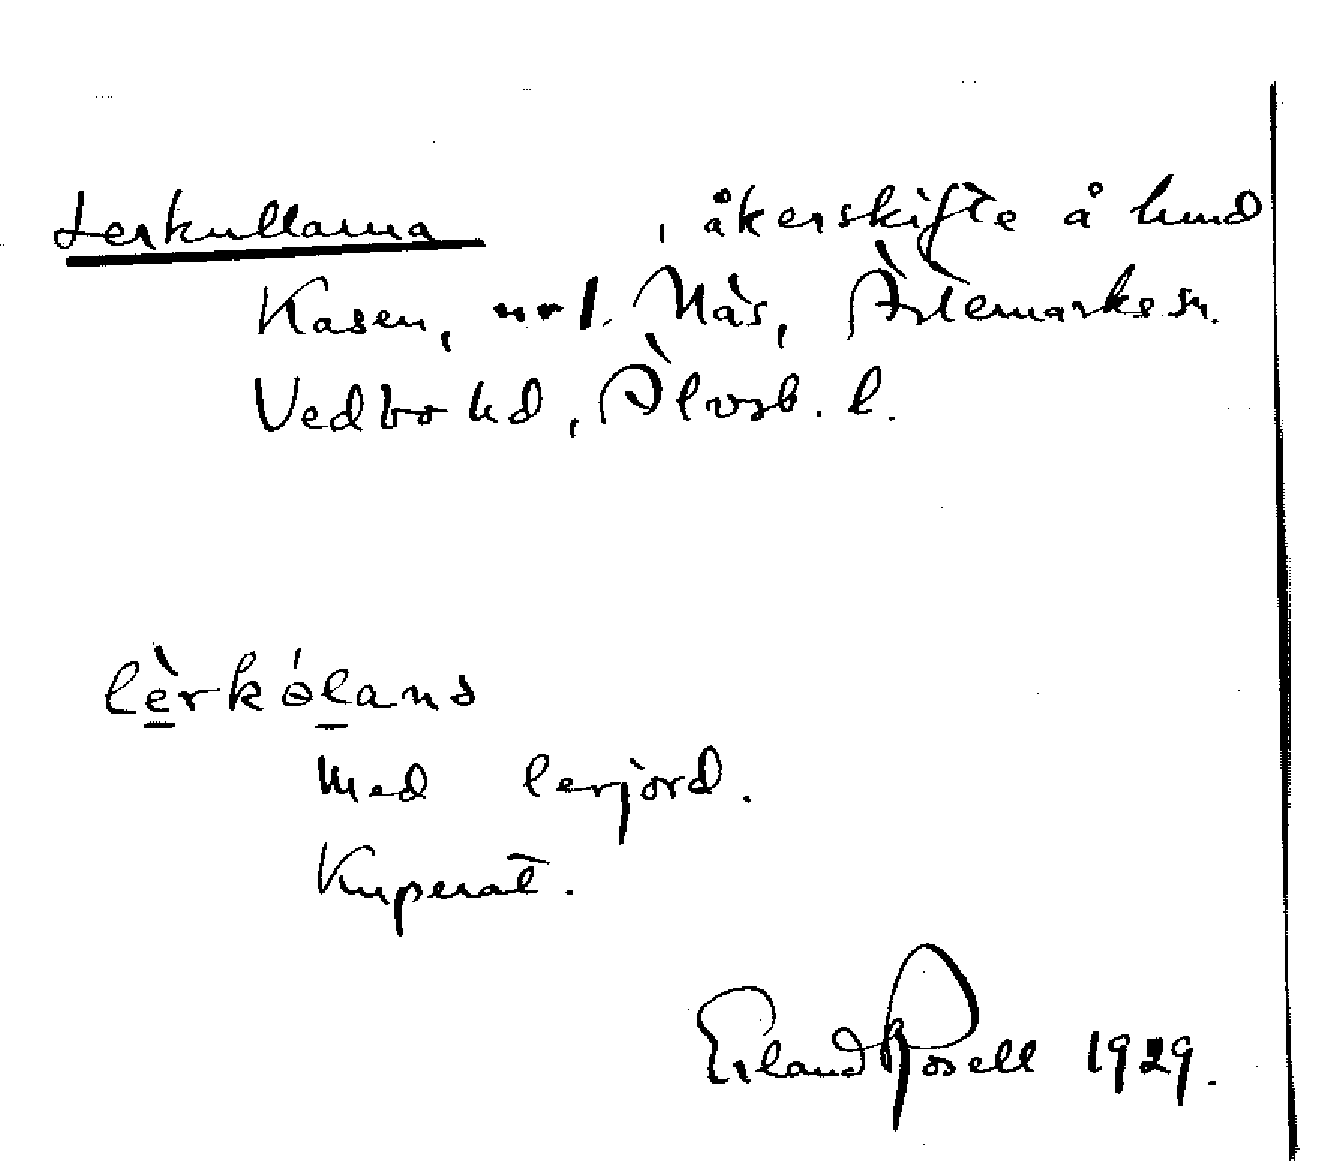 Lerkullarna , åkerskifte å hmd
Kasen, nr 1. Näs, Ärtemarks sn.
Vedbo hd, Älvsb. l.
lèrkólans
med lerjord.
Kuperat.
Erland Rosell 1929.